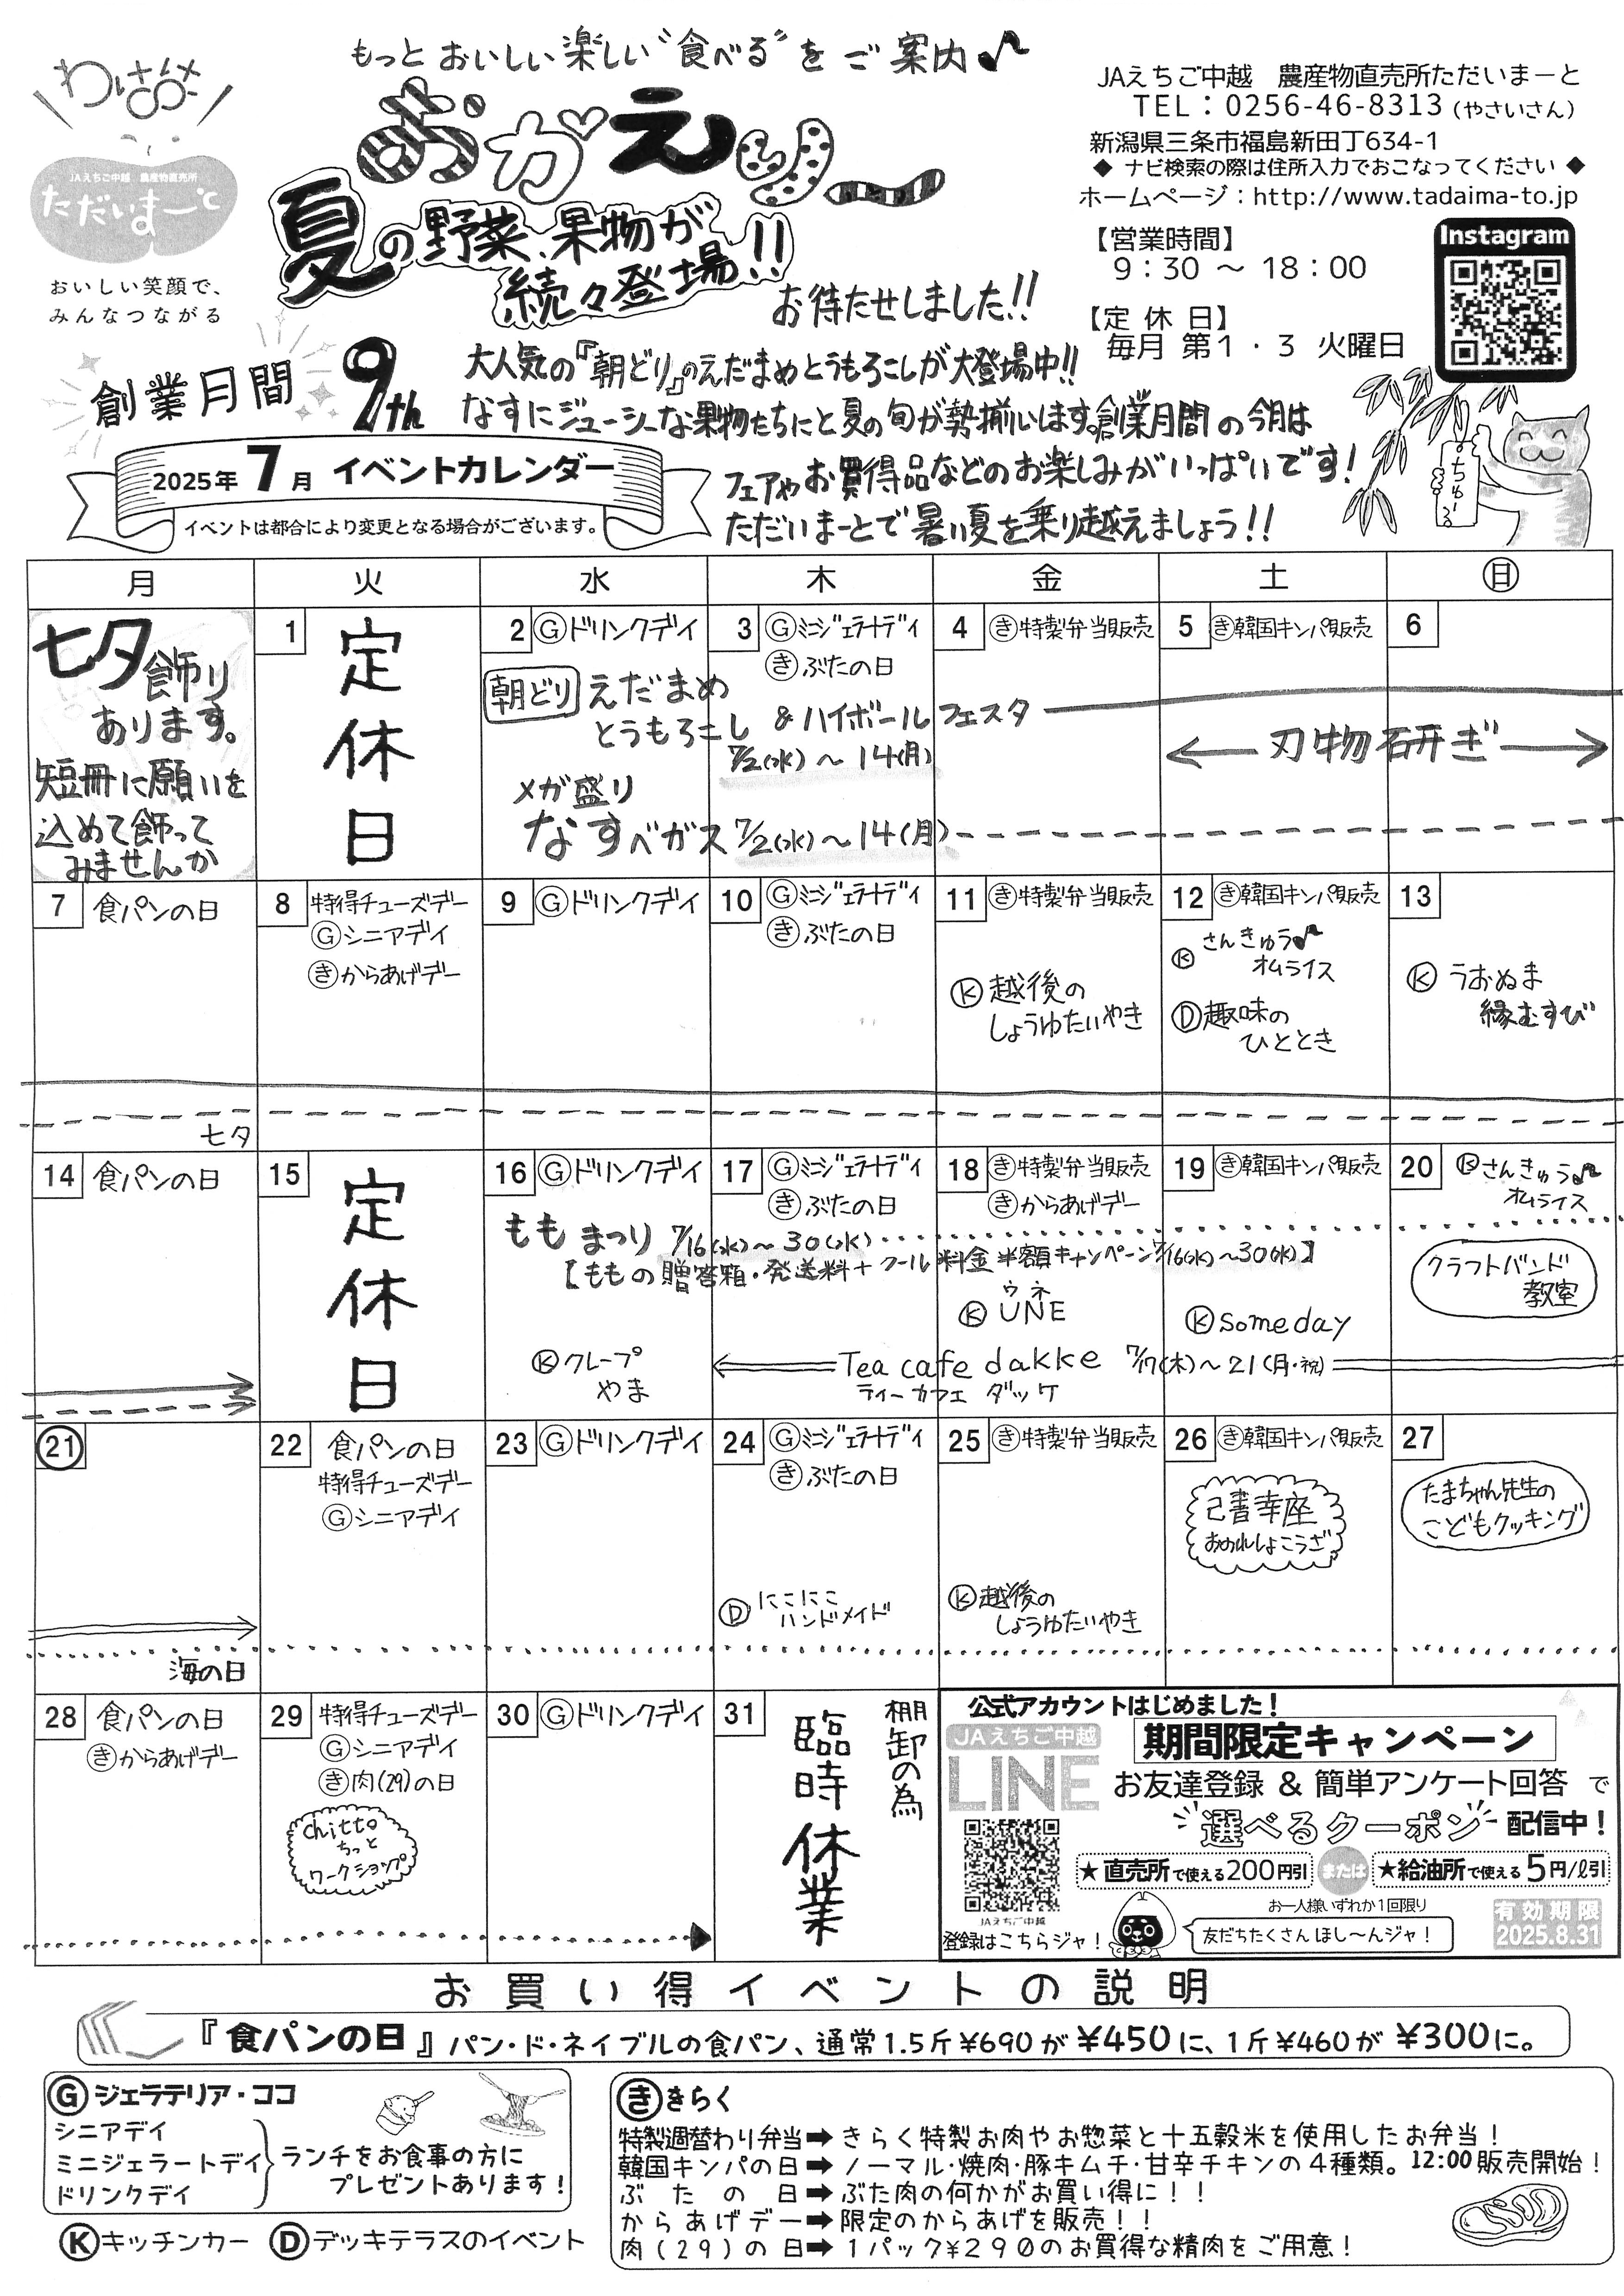 もっと おいしい 楽しい "食べる" を ご 案内♪
わはは
JAえちご中越 農産物直売所
ただいまーと
おいしい笑顔で、
みんなつながる
おかえり〜
夏の野菜、果物が
続々登場!!
お待たせしました!!
JAえちご中越 農産物直売所ただいまーと
TEL：0256-46-8313（やさいさん）
新潟県三条市福島新田丁634-1
◆ ナビ検索の際は住所入力でおこなってください ◆
ホームページ：http://www.tadaima-to.jp
【営業時間】
9：30 ～ 18：00
【定 休 日】
毎月 第1・3 火曜日
Instagram
創業月間 9th
大人気の『朝どり』のえだまめとうもろこしが大登場中!!
なすにジューシーな果物たちにと夏の旬が勢揃いします。創業月間の今月は
フェアやお買得品などのお楽しみがいっぱいです！
ただいまーとで暑い夏を乗り越えましょう!!
ちゅ〜る
2025年 7月 イベントカレンダー
イベントは都合により変更となる場合がございます。
月 火 水 木 金 土 日
七夕飾り
あります。
短冊に願いを
込めて飾って
みませんか
1 定休日
2 Ⓖドリンクデイ
3 Ⓖミニジェラートデイ
㋖ぶたの日
4 ㋖特製弁当販売
5 ㋖韓国キンパ販売
6
朝どり えだまめ
とうもろこし & ハイボールフェスタ
7/2(水)～14(月)
刃物研ぎ
メガ盛り
なすべガス 7/2(水)～14(月)
7 食パンの日
七夕
8 特得チューズデー
Ⓖシニアデイ
㋖からあげデー
9 Ⓖドリンクデイ
10 Ⓖミニジェラートデイ
㋖ぶたの日
11 ㋖特製弁当販売
Ⓚ越後の
しょうゆたいやき
12 ㋖韓国キンパ販売
Ⓚさんきゅう♪
オムライス
Ⓓ趣味の
ひととき
13
Ⓚうおぬま
縁むすび
14 食パンの日
15 定休日
16 Ⓖドリンクデイ
17 Ⓖミニジェラートデイ
㋖ぶたの日
18 ㋖特製弁当販売
㋖からあげデー
19 ㋖韓国キンパ販売
20 Ⓚさんきゅう♪
オムライス
ももまつり 7/16(水)～30(水)
【ももの贈答箱・発送料+クール料金半額キャンペーン7/16(水)～30(水)】
クラフトバンド
教室
ウネ
ⓀUNE
Ⓚsomeday
Ⓚクレープ
やま
Tea cafe dakke 7/17(木)～21(月・祝)
ティーカフェ ダッケ
21
海の日
22 食パンの日
特得チューズデー
Ⓖシニアデイ
23 Ⓖドリンクデイ
24 Ⓖミニジェラートデイ
㋖ぶたの日
Ⓓにこにこ
ハンドメイド
25 ㋖特製弁当販売
Ⓚ越後の
しょうゆたいやき
26 ㋖韓国キンパ販売
己書幸座
おのれしょこうざ
27
たまちゃん先生の
こどもクッキング
28 食パンの日
㋖からあげデー
29 特得チューズデー
Ⓖシニアデイ
㋖肉(29)の日
chitto
ちっと
ワークショップ
30 Ⓖドリンクデイ
31 棚卸の為
臨時休業
公式アカウントはじめました！
JAえちご中越
LINE
期間限定キャンペーン
お友達登録 & 簡単アンケート回答 で
選べるクーポン 配信中！
★直売所で使える200円引 または ★給油所で使える5円/ℓ引
お一人様いずれか1回限り
JAえちご中越
登録はこちらジャ！
友だちたくさん ほし〜んジャ！
有効期限
2025.8.31
お買い得イベントの説明
『食パンの日』パン・ド・ネイブルの食パン、通常1.5斤¥690が¥450に、1斤¥460が¥300に。
Ⓖジェラテリア・ココ
シニアデイ
ミニジェラートデイ
ドリンクデイ
ランチをお食事の方に
プレゼントあります！
Ⓚキッチンカー Ⓓデッキテラスのイベント
㋖きらく
特製週替わり弁当➡きらく特製お肉やお惣菜と十五穀米を使用したお弁当！
韓国キンパの日➡ノーマル・焼肉・豚キムチ・甘辛チキンの4種類。12:00販売開始！
ぶたの日➡ぶた肉の何かがお買い得に！！
からあげデー➡限定のからあげを販売！！
肉(29)の日➡1パック¥290のお買得な精肉をご用意！